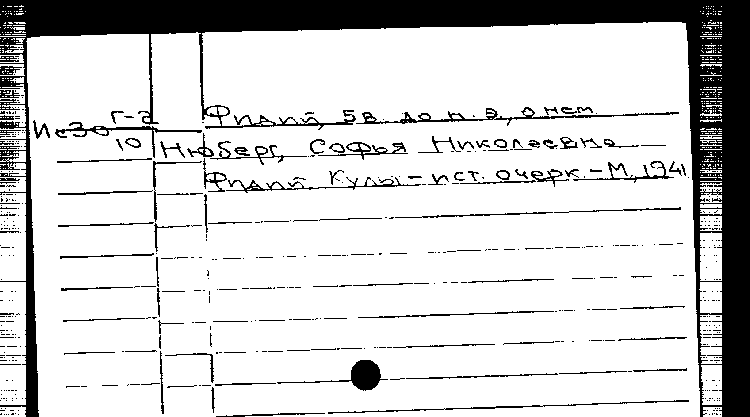 Г-2
Фидий, 5в. до н. э, о нем
Ис30
10
Нюберг, Софья Николаевна
Фидий. Культ-ист. очерк.-М, 1941